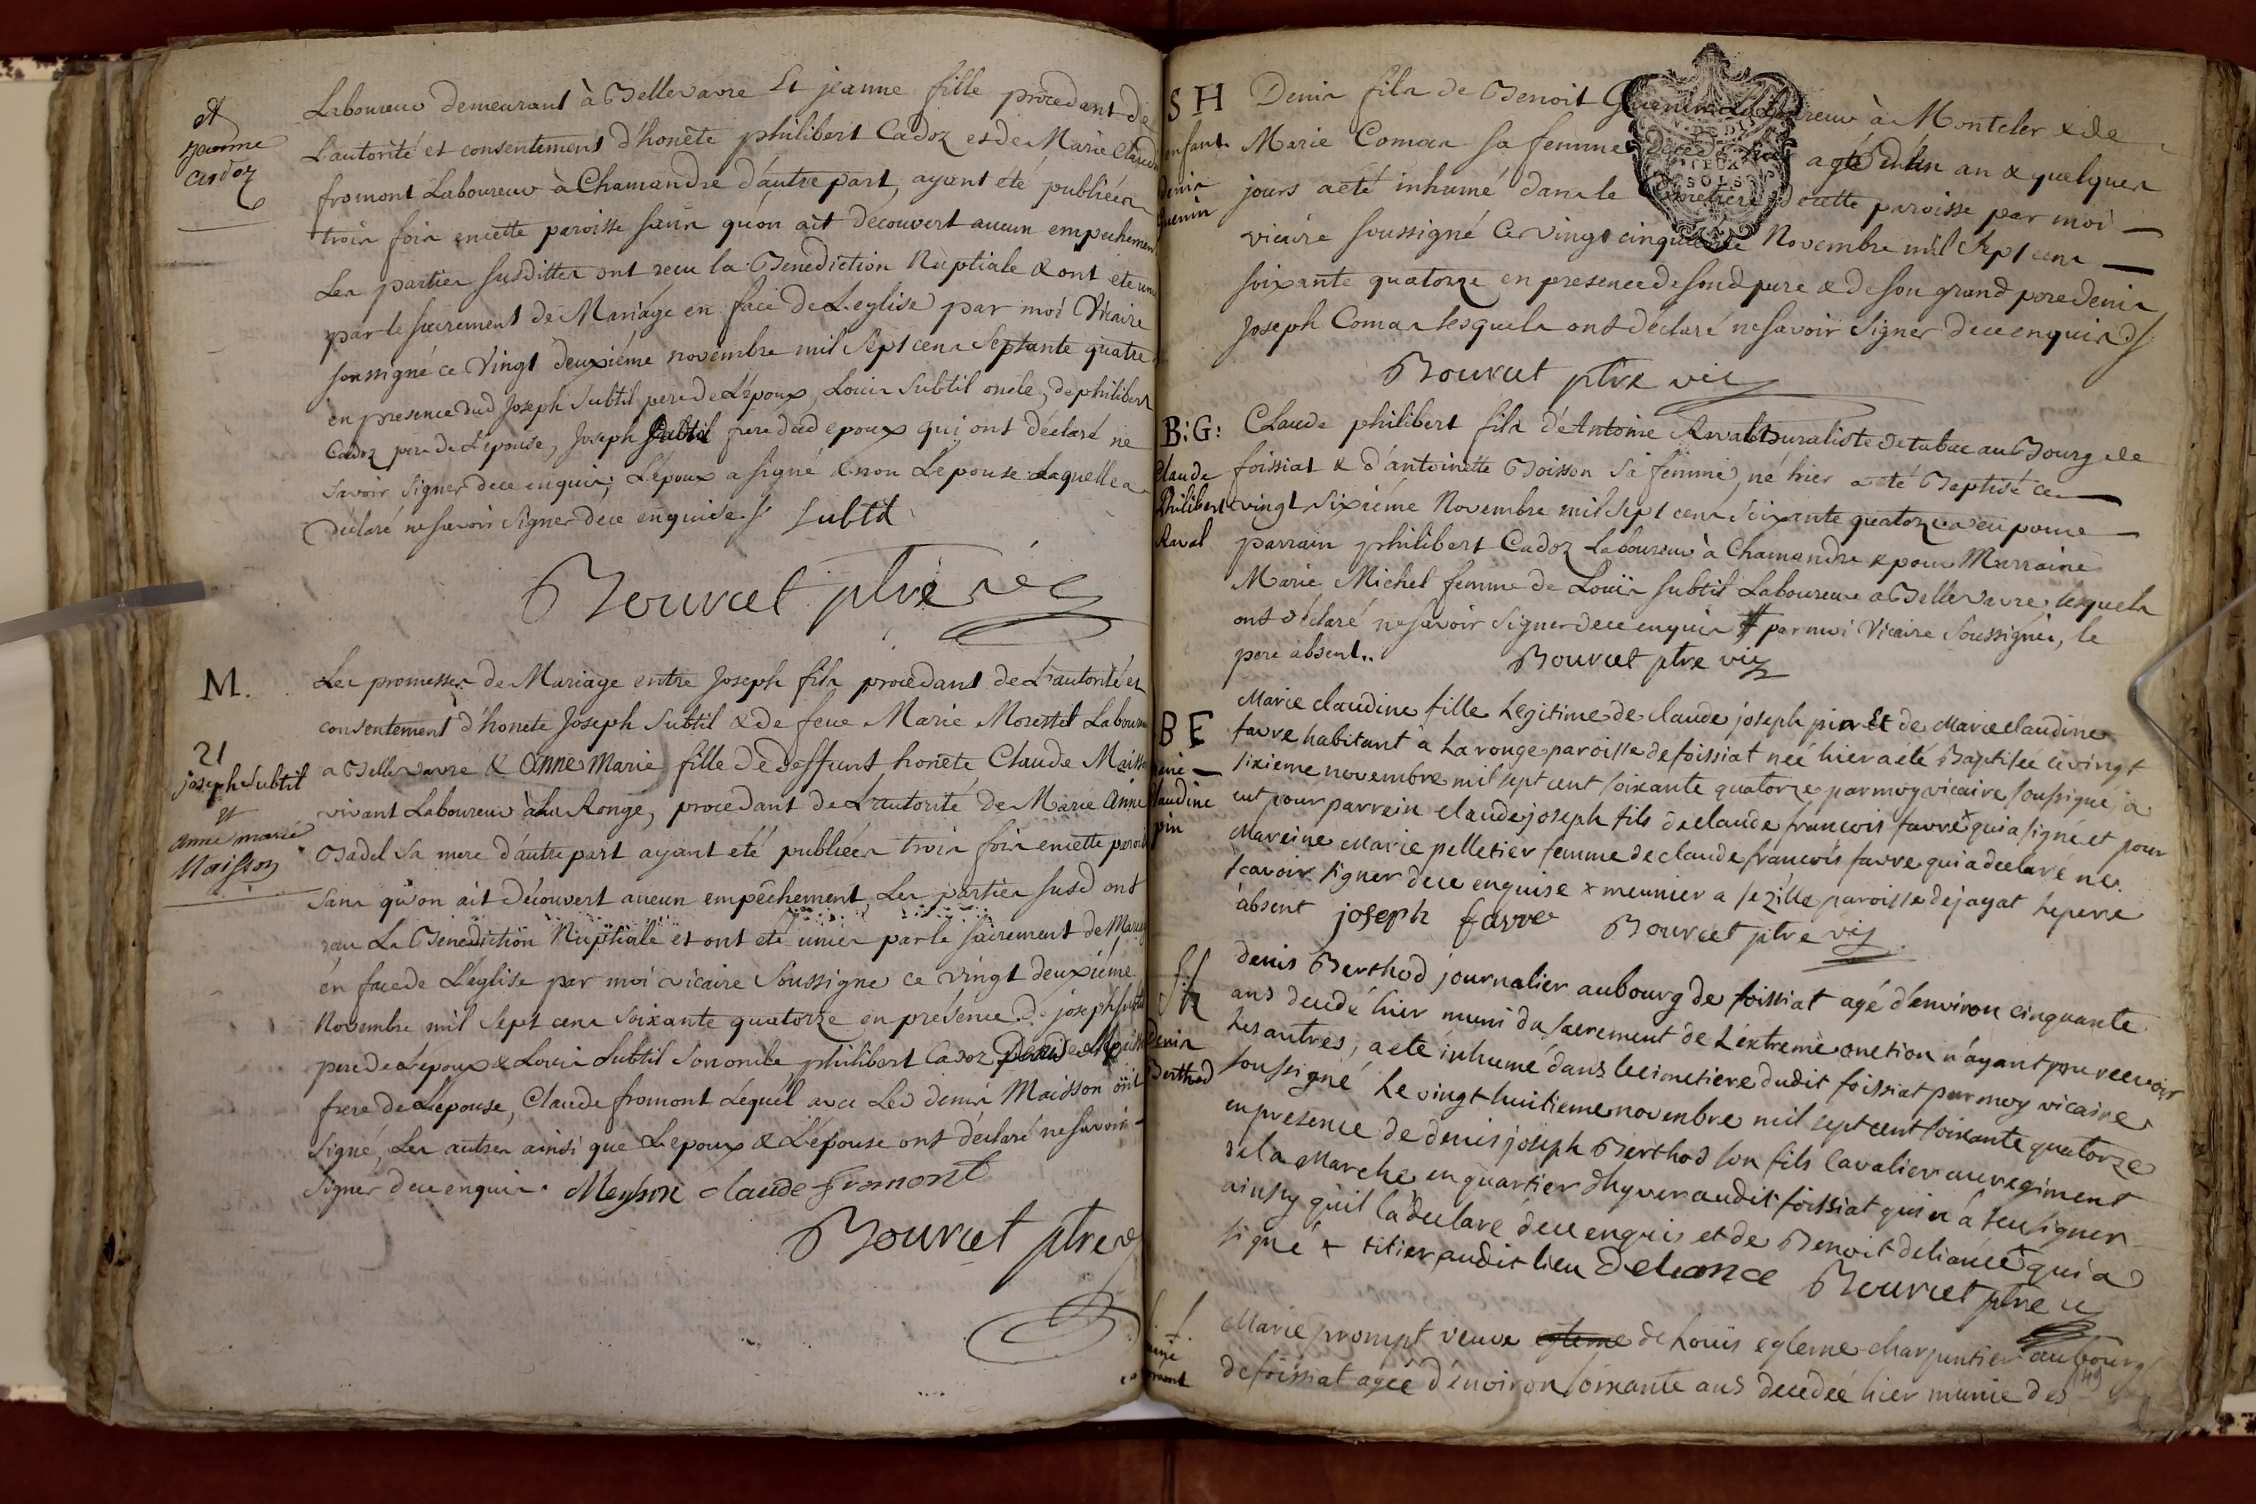 et
jeanne
cadoz
Laboureur demeurant à Bellevavre Et jeanne fille procedant de
L'autorité et consentement d'honête philibert Cadoz et de Marie Claudine
fromont Laboureur à Chamandre d'autre part, ayant eté publiées
trois fois en cette paroisse sans qu'on ait decouvert aucun empechement
Les parties susdittes ont recu la Benediction Nuptiale & ont eté unis
par le sacrement de Mariage en face de L'eglise par moi Vicaire
soussigné ce Vingt deuxiéme novembre mil Sept cens Septante quatre
en presence dud Joseph Subtil pere de L'époux, Louis Subtil oncle, de philibert
Cadoz pere de L'épouse, Joseph Subtil frere dud epoux qui ont déclaré ne
savoir signer de ce enquis; L'époux a signé & non L'épouse Laquelle a
declaré ne savoir signer de ce enquise. Subtil
Bourcet ptre vic
M.
21
joseph Subtil
et
anne marie
Maisson
Les promesses de Mariage entre Joseph fils procedant de L'autorité et
consentement d'honete Joseph Subtil & de feue Marie Morestel Laboureur
a Bellevavre & Anne Marie fille de deffunt honête Claude Maisson
vivant Laboureur à La Ronge, procedant de L'autorité de Marie Anne
Badel Sa mere d'autre part ayant eté publiées trois fois en cette paroisse
sans qu'on ait découvert aucun empêchement, Les parties susd ont
recu La Benediction Nuptiale et ont eté unies par le sacrement de Mariage
en face de L'église par moi vicaire Soussigné ce vingt deuxiéme
Novembre mil Sept cens Soixante quatorze en présence de joseph subtil
pere de L'epoux & Louis Subtil Son oncle, philibert Cadoz, Denis Maisson
frere de L'epouse, Claude fromont Lequel avec Led denis Maisson ont
signé, Les autres ainsi que L'epoux & L'épouse ont déclaré ne savoir
signer de ce enquis. Meyson claude fromont
Bourcet ptre v
S H
enfant
denis
guenin
Denis fils de Benoit Guenin Laboureur à Montcler & de
Marie Comas sa femme décédé hier agé d'un an & quelques
jours a eté inhumé dans le Cimetiere de cette paroisse par moi
vicaire soussigné Ce vingt cinquieme Novembre mil Sept cens
soixante quatorze en presence de sond pere & de son grand pere denis
Joseph Comas lesquels ont déclaré ne savoir signer de ce enquis
Bourcet ptre vic
B: G:
Claude
Philibert
Raval
Claude philibert fils d'Antoine Raval Buraliste de tabac au Bourg de
foissiat & d'antoinette Boisson sa femme, né hier a eté Baptisé ce
vingt sixiéme Novembre mil Sept cens soixante quatorze a eu pour
parrain philibert Cadoz Laboureur à Chamandre & pour Marraine
Marie Michel femme de Louis Subtil Laboureur a Bellevavre, lesquels
ont déclaré ne savoir signer de ce enquis par moi Vicaire Soussigné, le
pere absent..
Bourcet ptre vic
B F
Marie
claudine
pin
Marie claudine fille Legitime de claude joseph pin Et de Marie claudine
favre habitant à La ronge paroisse de foissiat née hier a eté Baptisée ce vingt
sixieme novembre mil sept cent soixante quatorze par moy vicaire soussigné, a
eut pour parrein claude joseph fils de claude francois favre qui a signé et pour
Mareine Marie pelletier femme de claude francois favre qui a declaré ne
scavoir signer de ce enquise x meunier a sezille paroisse de jayat Le pere
absent joseph favre Bourcet ptre vic
S h
Denis
Berthod
denis Berthod journalier au bourg de foissiat agé d'environ cinquante
ans decedé hier muni du sacrement de L'extreme onction n'ayant pu recevoir
Les autres, a eté inhumé dans le cimetiere dudit foissiat par moy vicaire
soussigné Le vingt huitieme novembre mil sept cent soixante quatorze
en presence de denis joseph Berthod son fils Cavalier au regiment
de la Marche en quartier d'hyver audit foissiat qui n'a sçu signer
ainsy qu'il l'a declaré de ce enquis et de Benoit deliance x qui a
signé x titier audit lieu Deliance Bourcet ptre v
Marie prompt veuve egleme de Louis egleme charpentier au bourg
de foissiat agée d'environ soixante ans decedée hier munie des